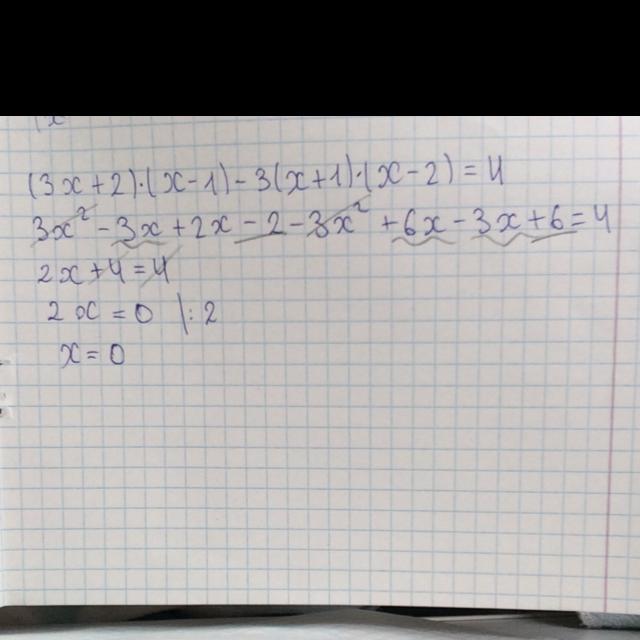 (3x+2)·(x-1)-3(x+1)·(x-2)=4
3x²-3x+2x-2-3x²+6x-3x+6=4
2x+4=4
2x=0 |:2
x=0